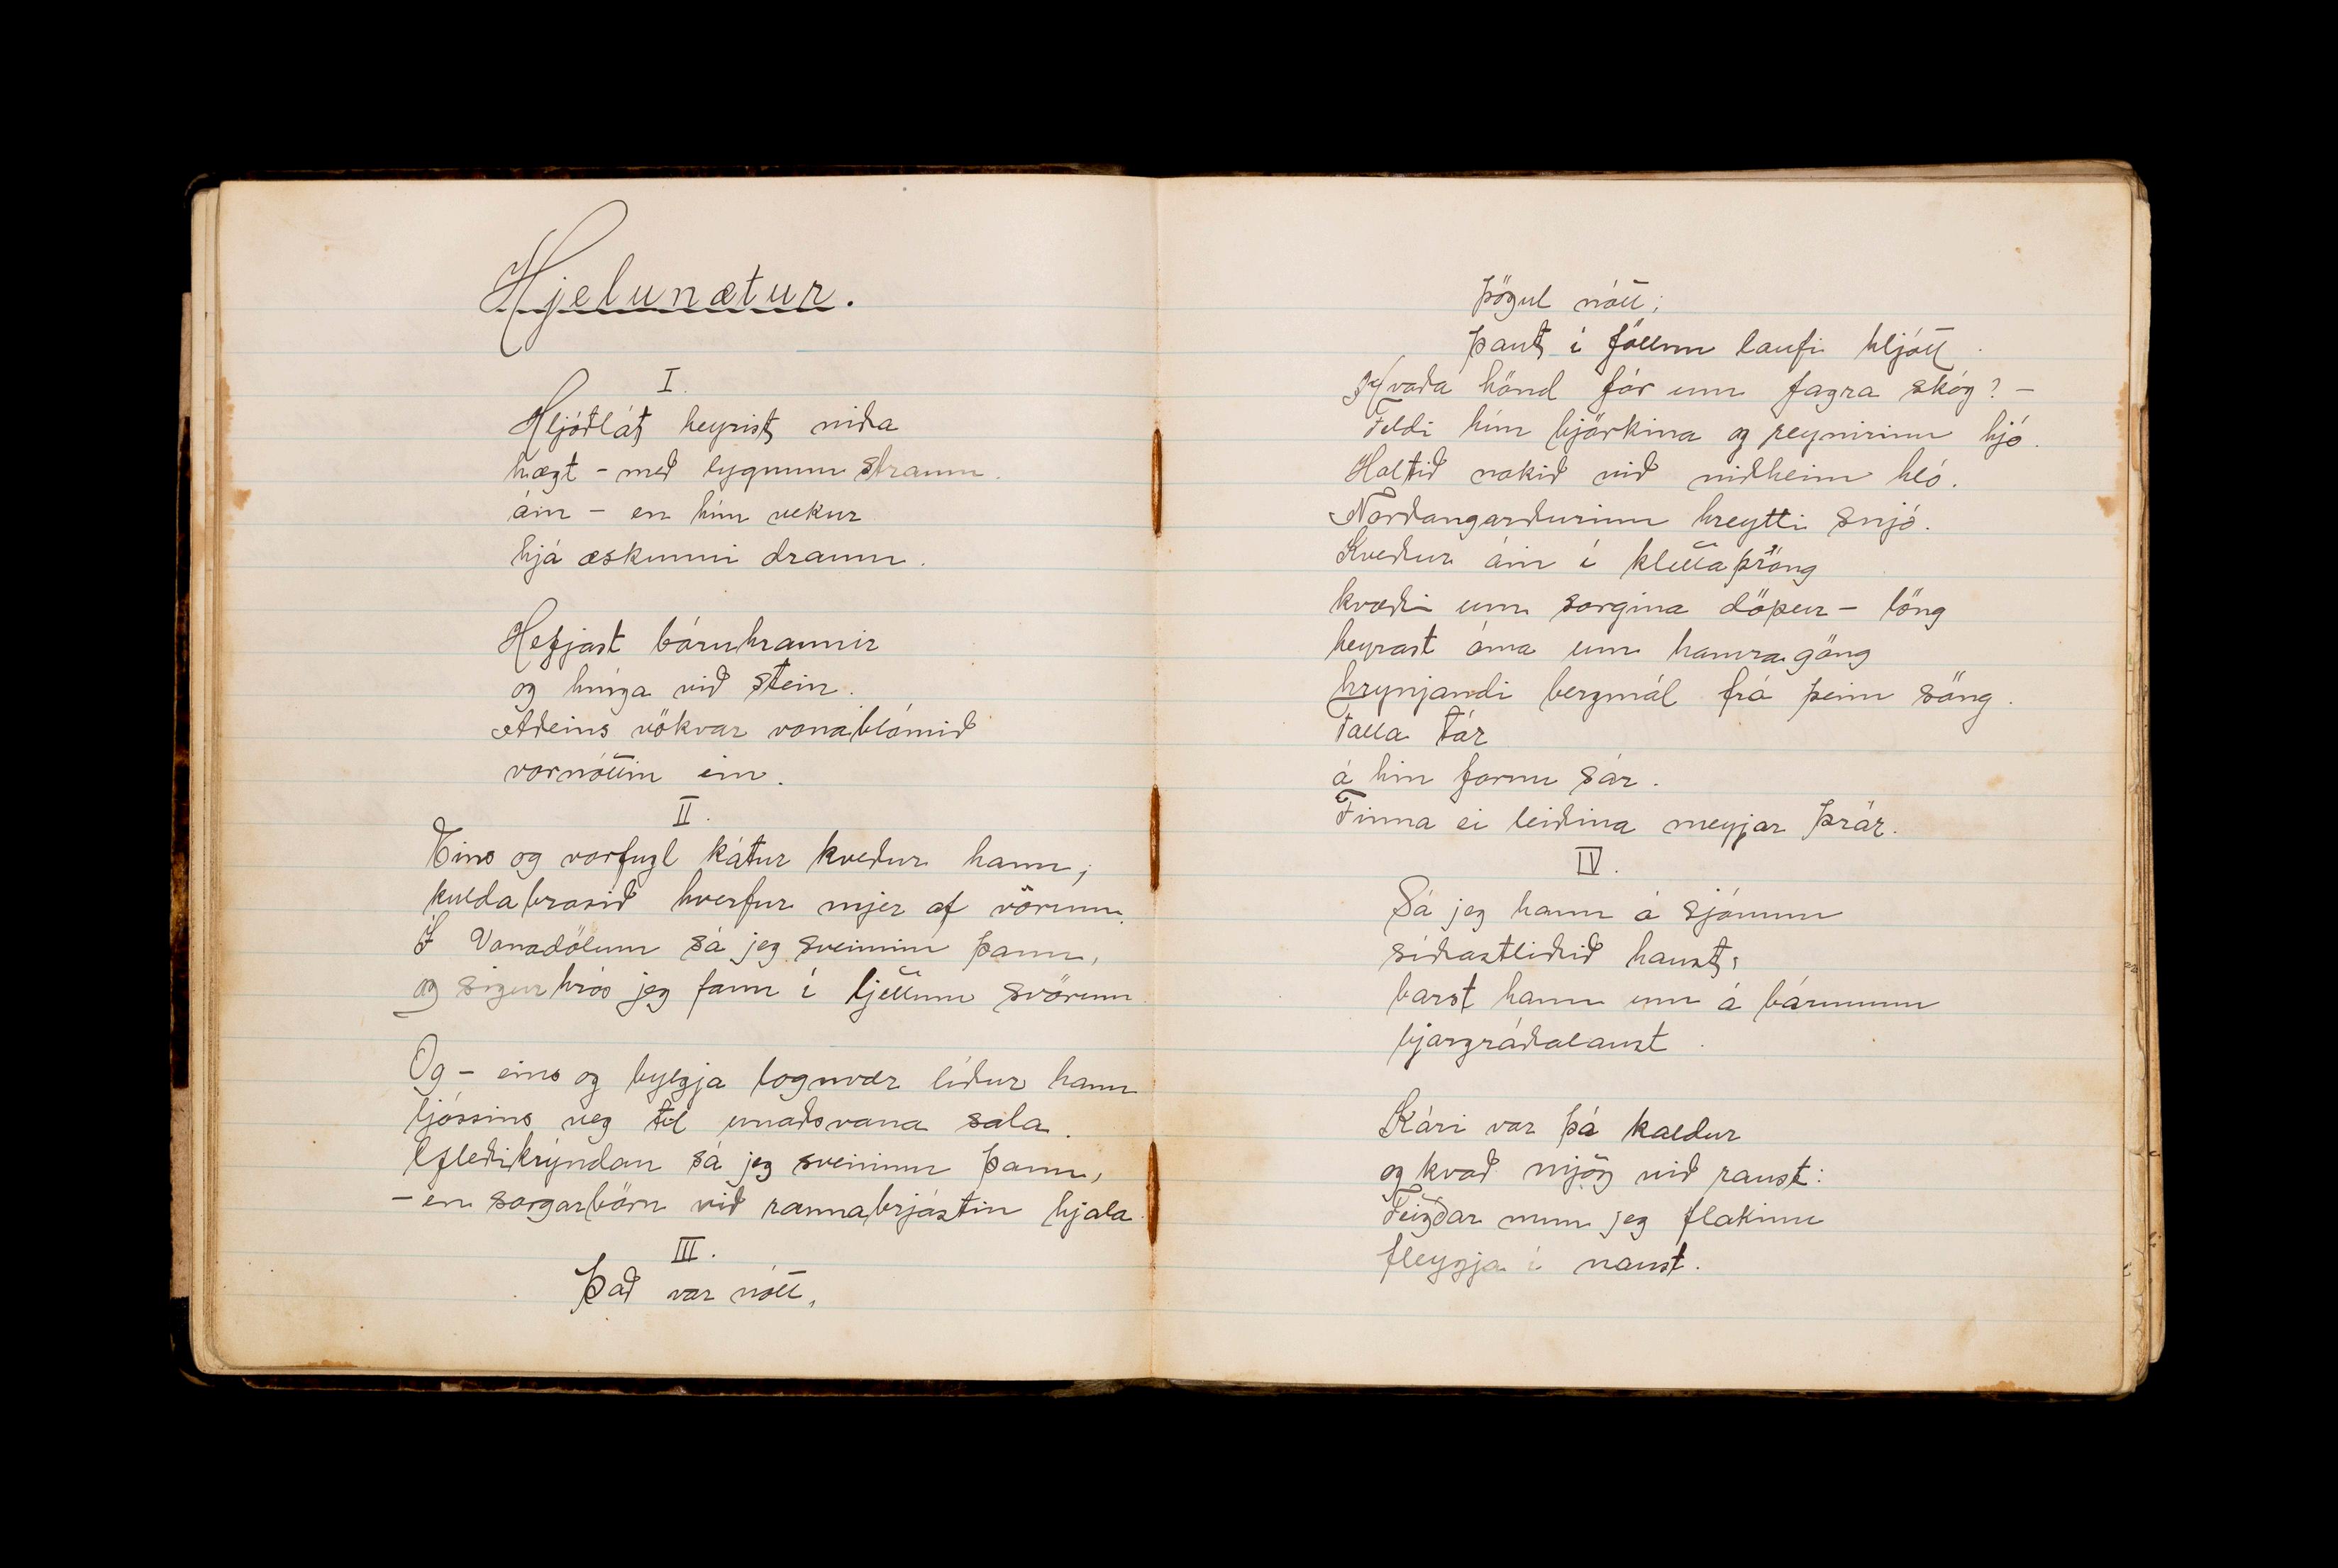 Hjelunætur.
I.
Hljóðlát heyrist niða
hægt - með lygnum straum.
áin - en hún vekur
hjá æskunni draum.
Hefjast báruhrannir
og hníga við stein.
Aðeins vökvar vonablómið
vornóttin ein.
II.
Eins og vorfugl kátur kveður hann;
kuldabrosið hverfur mjer af vörum.
Í Vonadölum sá jeg sveininn þann,
og sigurhrós jeg fann í ljettum svörum
Og - eins og bylgja lognvær líður hann
ljóssins veg til unaðsvana sala.
Gleðikrýndan sá jeg sveininn þann,
- en sorgarbörn við rannabrjóstin hjala.
III.
Það var nótt,
Þögul nótt;
Þaut í föllnu laufi hljótt.
Hvaða hönd fór um fagra skóg? -
Feldi hún björkina og reynirinn hjó.
Holtið nakið við niðheim hló.
Norðangarðurinn hreytti snjó.
Kveður áin í klettaþröng
kvæði um sorgina döpur - löng
heyrast óma um hamragöng
hrynjandi bergmál frá þeim söng.
Falla tár
á hin fornu sár.
Finna ei leiðina meyjar þrár.
IV.
Sá jeg hann á sjónum
síðastliðið haust;
barst hann um á bárunum
bjargráðalaust.
Kári var þá kaldur
og kvað mjög við raust:
Feigðar mun jeg flakinu
fleygja í naust.